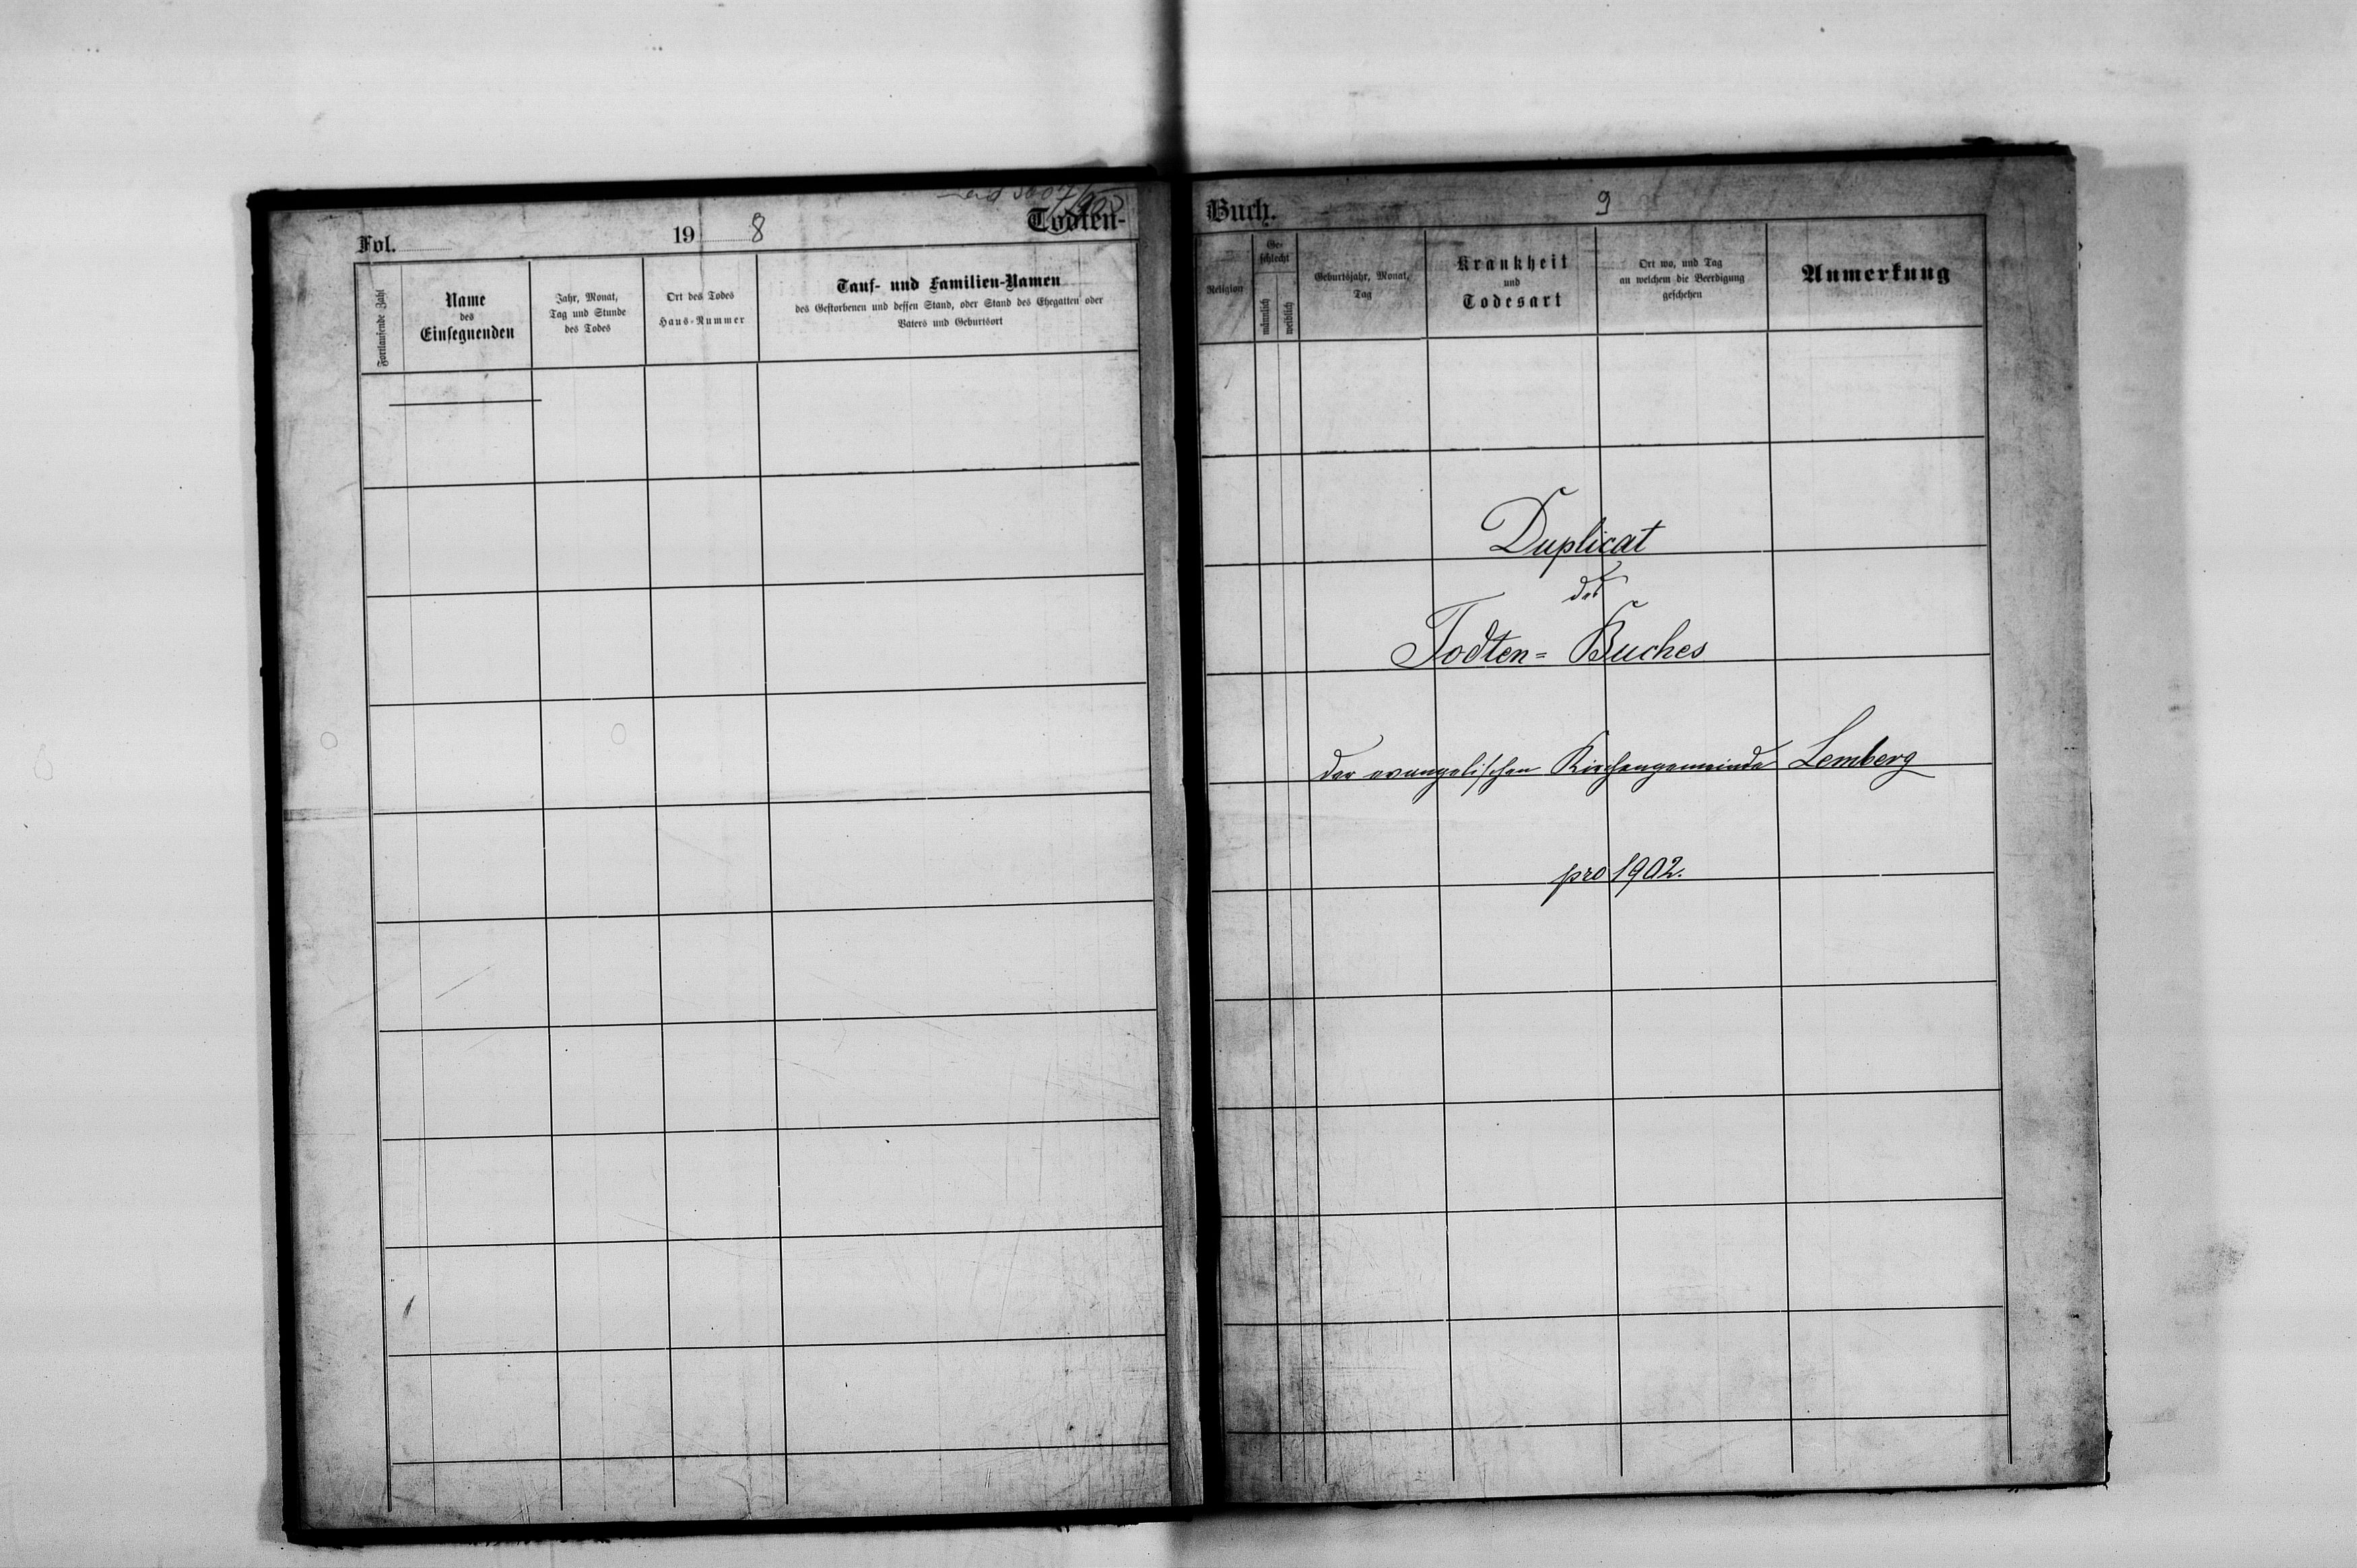 Fol. 19 8 Todten-
Fortlaufende Zahl
Name
des
Einsegnenden
Jahr, Monat,
Tag und Stunde
des Todes
Ort des Todes
Haus-Nummer
Tauf- und Familien-Namen
des Gestorbenen und dessen Stand, oder Stand des Ehegatten oder
Vaters und Geburtsort
Buch. 9
Religion
Ge-
schlecht
männlich
weiblich
Geburtsjahr, Monat,
Tag
Krankheit
und
Todesart
Ort wo, und Tag
an welchem die Beerdigung
geschehen
Anmerkung
Duplicat
des
Todten= Buches
der evangelischen Kirchengemeinde Lemberg
pro 1902.